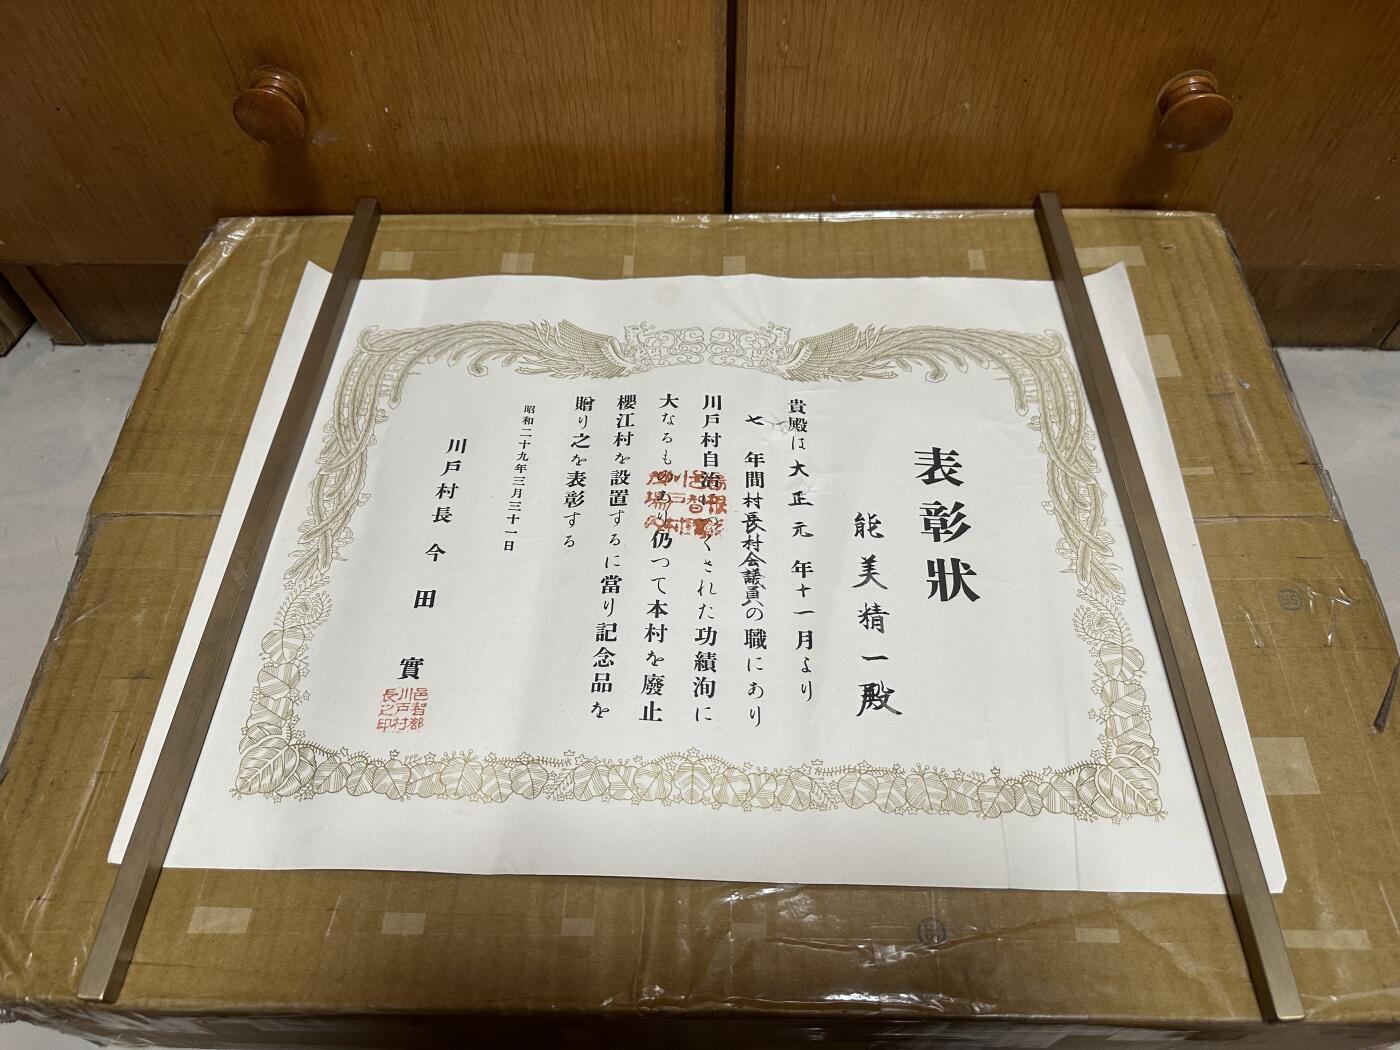 表彰狀
能美精一殿
貴殿は大正元年十一月より
七年間村長村会議員の職にあり
川戸村自治につくされた功績洵に
大なるものあり仍つて本村を廢止
櫻江村を設置するに當り記念品を
贈り之を表彰する
昭和二十九年三月三十一日
川戸村長 今田實
邑智郡
川戸村
長之印